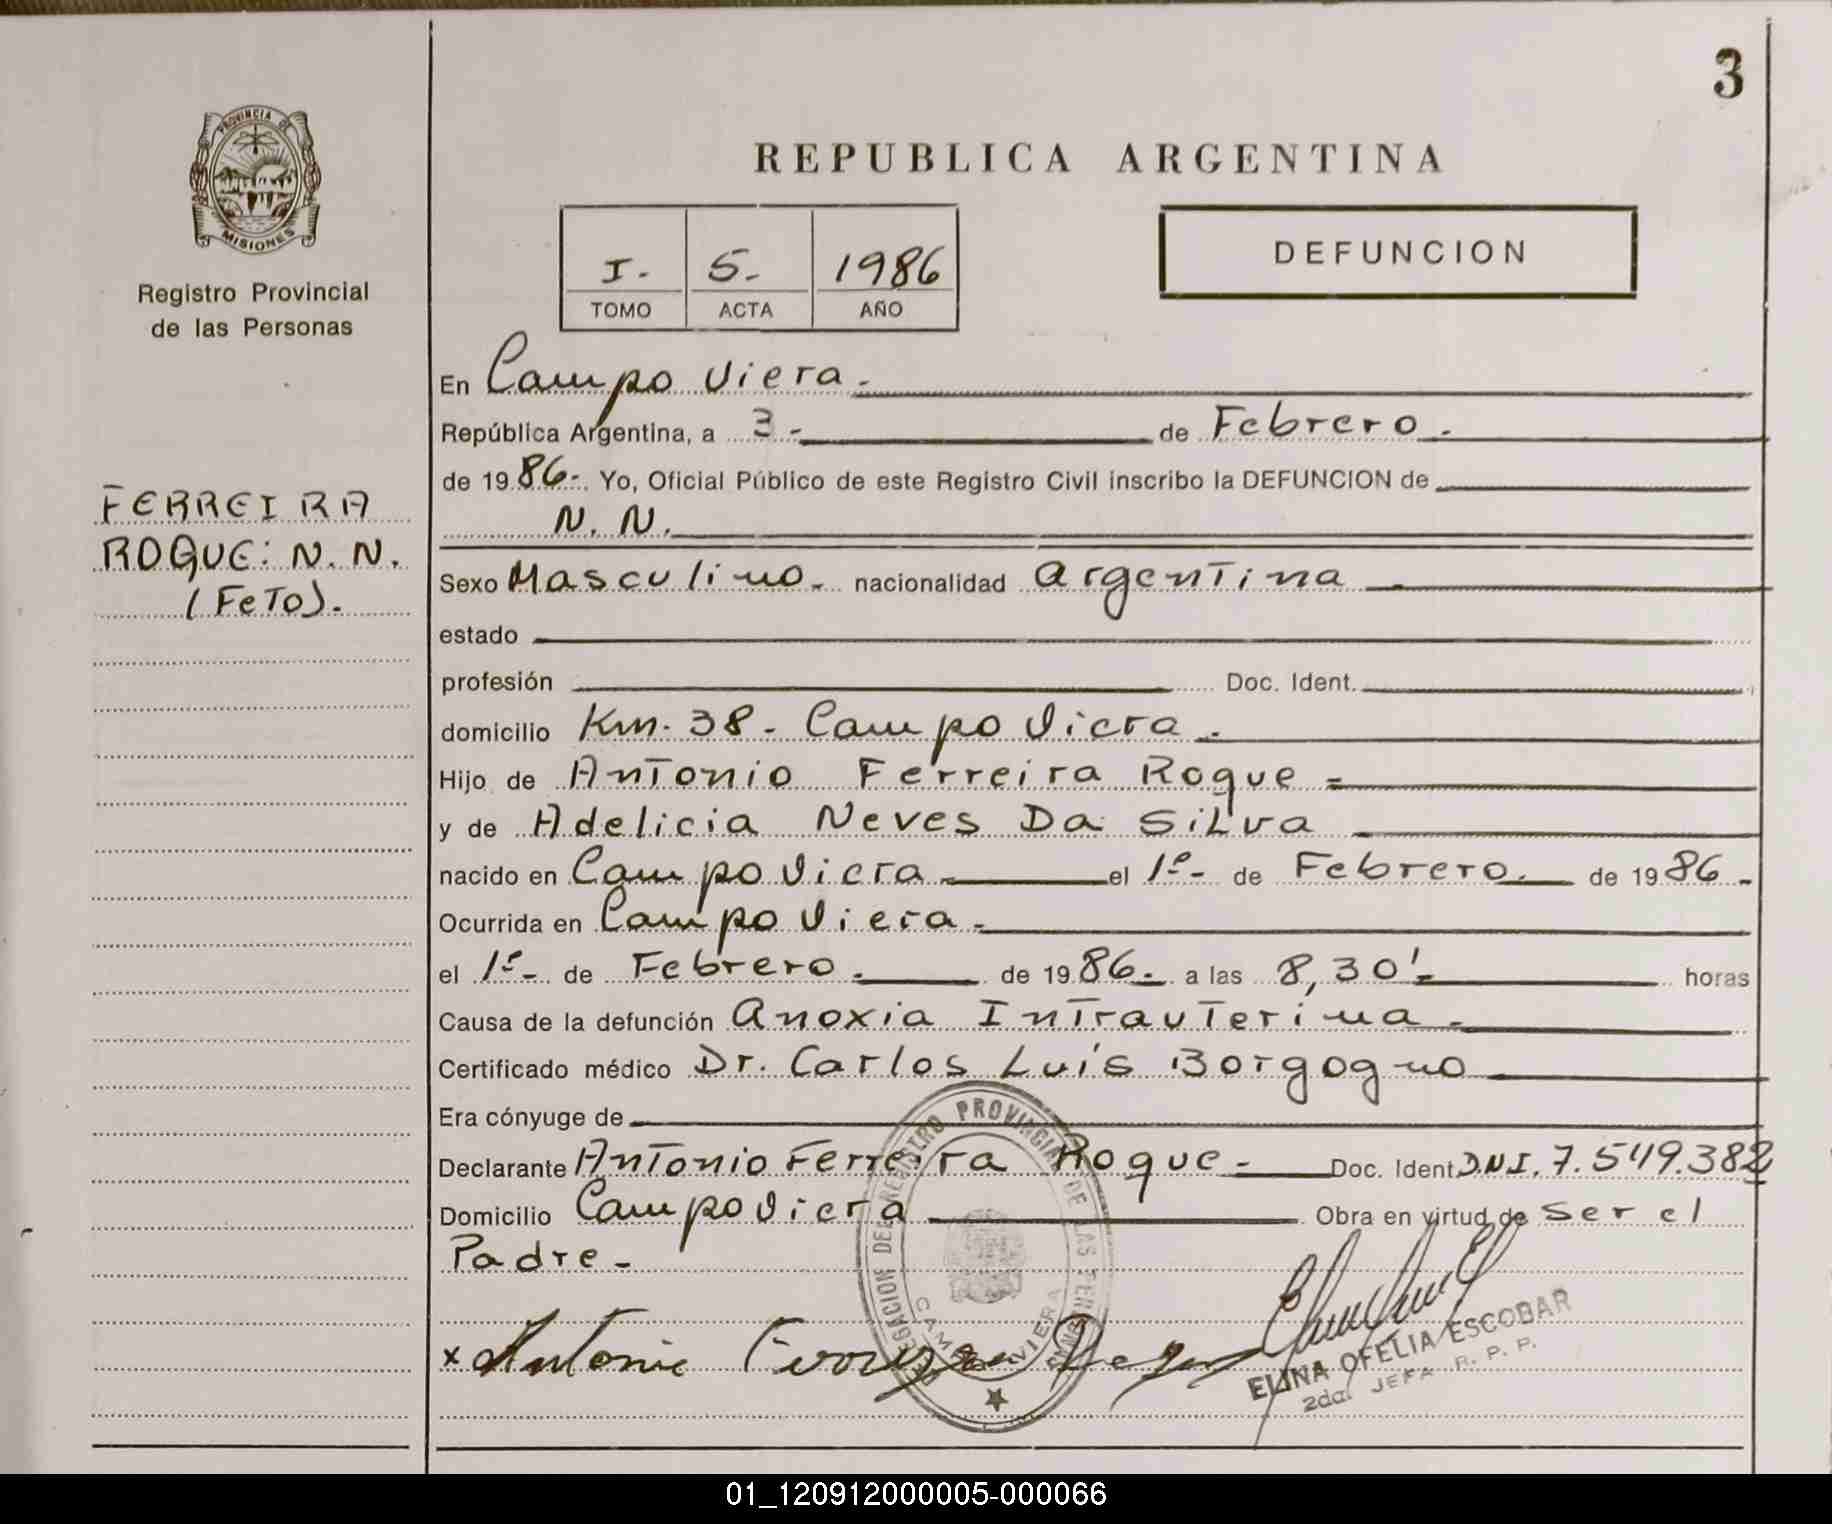 3
PROVINCIA DE
MISIONES
Registro Provincial
de las Personas
REPUBLICA ARGENTINA
I. 5- 1986
TOMO ACTA AÑO
DEFUNCION
FERREIRA
ROQUE: N. N.
(FeTo).
En Campo Viera.
República Argentina, a 3 - de Febrero.
de 1986-. Yo, Oficial Público de este Registro Civil inscribo la DEFUNCION de
N. N.
Sexo Masculino- nacionalidad Argentina -
estado
profesión Doc. Ident.
domicilio Km. 38- Campo Viera.
Hijo de Antonio Ferreira Roque =
y de Adelicia Neves Da Silva
nacido en Campo Viera- el 1º- de Febrero. de 1986-
Ocurrida en Campo Viera-
el 1º- de Febrero. de 1986.- a las 8,30'- horas
Causa de la defunción Anoxia Intrauterina -
Certificado médico Dr. Carlos Luís Borgogno
Era cónyuge de
Declarante Antonio Ferreira Roque- Doc. Ident. D.N.I. 7.549.382
Domicilio Campo Viera Obra en virtud de Ser el
Padre-
DELEGACION DEL REGISTRO PROVINCIAL DE LAS PERSONAS
CAMPO VIERA
x Antonio
ELINA OFELIA ESCOBAR
2da. JEFA R. P. P.
01_120912000005-000066